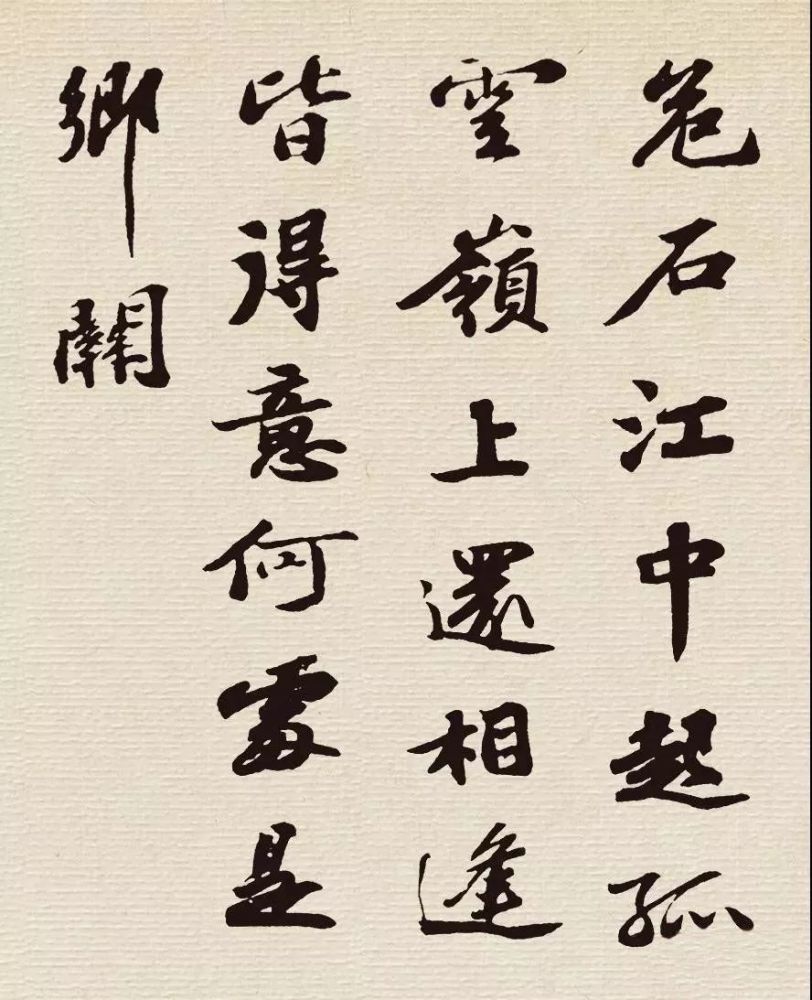 危石江中起孤
雲嶺上還相逢
皆得意何處是
鄉關